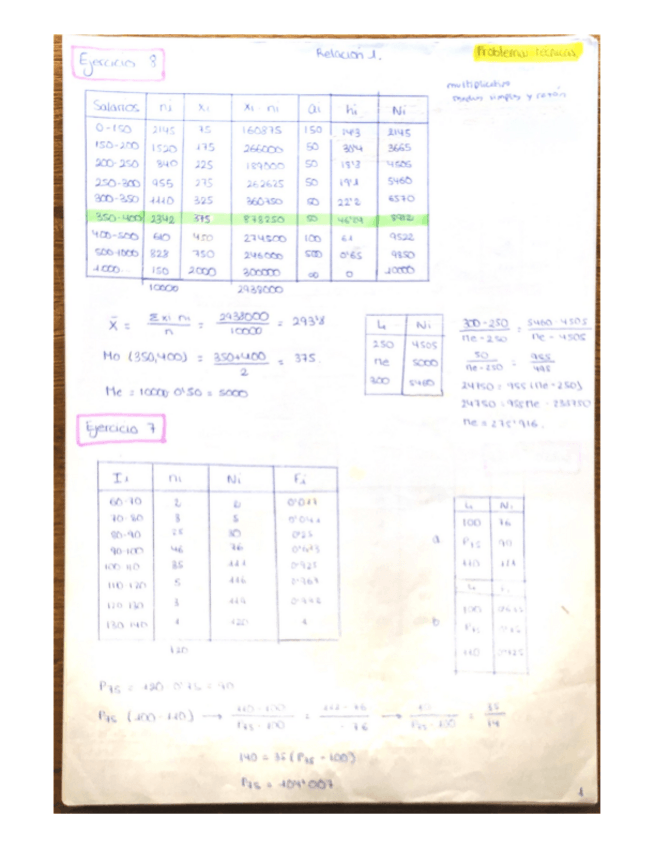 Relación 1.
Problemas técnicas
Ejercicio 8
multiplicativo
Salarios ni xi xi·ni ai hi Ni
0-150 2145 75 160875 150 14'3 2145
150-200 1520 175 266000 50 30'4 3665
200-250 840 225 189000 50 4505
250-300 955 275 262625 50 19'1 5460
300-350 1110 325 360750 50 22'2 6570
350-400 2342 375 878250 50 46'84 8912
400-500 610 450 274500 100 6'1 9522
500-1000 328 750 246000 500 0'65 9850
1000... 150 2000 300000 ∞ 0 10000
10000 2938000
x̄ = Σxi ni / n = 2938000 / 10000 = 293'8
Mo (350,400) = 350+400 / 2 = 375
Me = 10000·0'50 = 5000
Li Ni
250 4505
Me 5000
300 5460
300-250 / Me-250 = 5460-4505 / Me-4505
50 / Me-250 = 955 / 495
24750 = 955 (Me-250)
24750 = 955Me -
Me = 275'916.
Ejercicio 7
Ii ni Ni Fi
60-70 2 2 0'017
70-80 3 5 0'041
80-90 25 30 0'25
90-100 46 76 0'633
100-110 35 111 0'925
110-120 5 116
120-130 3 119
130-140 1 120 1
120
a
Li Ni
100 76
P75 90
110 111
b
Li Fi
100
P75 0'75
110 0'925
P75 = 120·0'75 = 90
P75 (100-110) → 110-100 / P75-100 = 111-76 / -76 → 10 / P75-100 = 35 / 14
140 = 35(P75-100)
P75 = 104'007
1